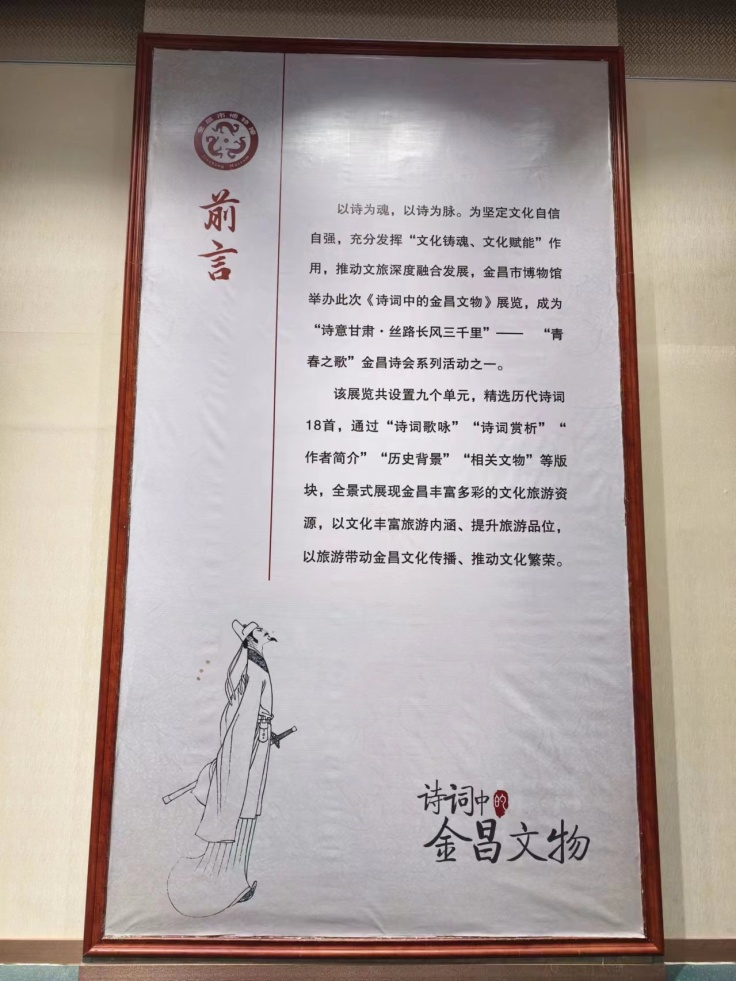 金昌市博物馆
前言
以诗为魂，以诗为脉。为坚定文化自信
自强，充分发挥“文化铸魂、文化赋能”作
用，推动文旅深度融合发展，金昌市博物馆
举办此次《诗词中的金昌文物》展览，成为
“诗意甘肃·丝路长风三千里”——　“青
春之歌”金昌诗会系列活动之一。
该展览共设置九个单元，精选历代诗词
18首，通过“诗词歌咏”“诗词赏析”“
作者简介”“历史背景”“相关文物”等版
块，全景式展现金昌丰富多彩的文化旅游资
源，以文化丰富旅游内涵、提升旅游品位，
以旅游带动金昌文化传播、推动文化繁荣。
诗词中的
金昌文物